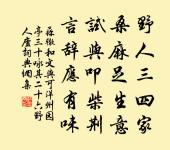 野人三四家
桑麻足生意
試與叩柴荆
言辭應有味
蘇徹和文與可洋州園
亭三十詠其二十六野
人廬詞典網集